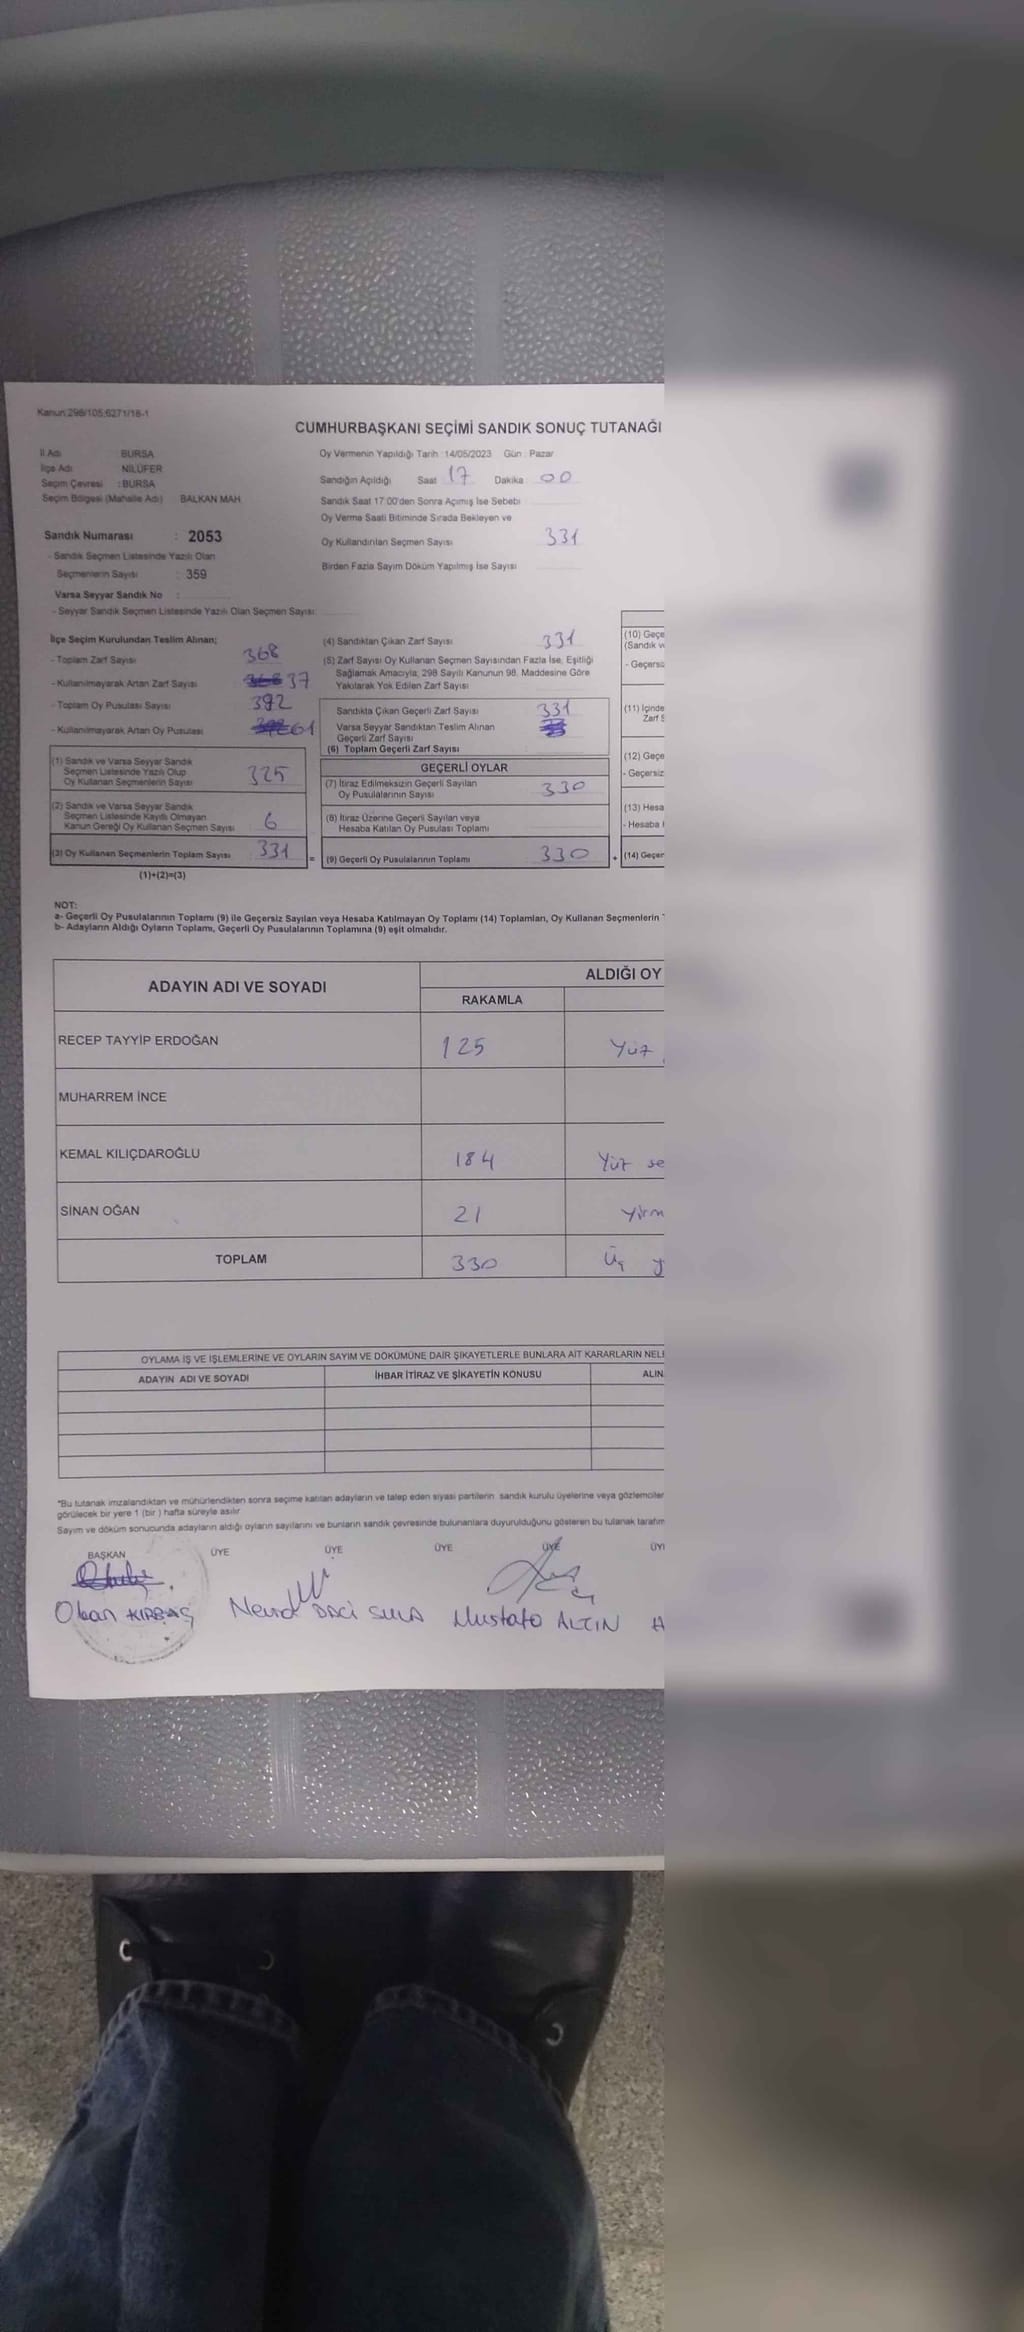 Kanun:298/105;6271/18-1
CUMHURBAŞKANI SEÇİMİ SANDIK SONUÇ TUTANAĞI
İl Adı : BURSA
İlçe Adı : NİLÜFER
Seçim Çevresi : BURSA
Seçim Bölgesi (Mahalle Adı) BALKAN MAH
Sandık Numarası : 2053
- Sandık Seçmen Listesinde Yazılı Olan
Seçmenlerin Sayısı : 359
Varsa Seyyar Sandık No :
- Seyyar Sandık Seçmen Listesinde Yazılı Olan Seçmen Sayısı:
Oy Vermenin Yapıldığı Tarih :14/05/2023 Gün : Pazar
Sandığın Açıldığı Saat 17 Dakika 00
Sandık Saat 17:00'den Sonra Açımış İse Sebebi
Oy Verme Saati Bitiminde Sırada Bekleyen ve
Oy Kullandırılan Seçmen Sayısı 331
Birden Fazla Sayım Döküm Yapılmış İse Sayısı
İlçe Seçim Kurulundan Teslim Alınan;
- Toplam Zarf Sayısı 368
- Kullanılmayarak Artan Zarf Sayısı 37
- Toplam Oy Pusulası Sayısı 392
- Kullanılmayarak Artan Oy Pusulası 61
(1) Sandık ve Varsa Seyyar Sandık
Seçmen Listesinde Yazılı Olup
Oy Kullanan Seçmenlerin Sayısı 325
(2) Sandık ve Varsa Seyyar Sandık
Seçmen Listesinde Kayıtlı Olmayan
Kanun Gereği Oy Kullanan Seçmen Sayısı 6
(3) Oy Kullanan Seçmenlerin Toplam Sayısı 331
(1)+(2)=(3)
(4) Sandıktan Çıkan Zarf Sayısı 331
(5) Zarf Sayısı Oy Kullanan Seçmen Sayısından Fazla İse, Eşitliği
Sağlamak Amacıyla, 298 Sayılı Kanunun 98. Maddesine Göre
Yakılarak Yok Edilen Zarf Sayısı
Sandıkta Çıkan Geçerli Zarf Sayısı 331
Varsa Seyyar Sandıktan Teslim Alınan
Geçerli Zarf Sayısı
(6) Toplam Geçerli Zarf Sayısı
GEÇERLİ OYLAR
(7) İtiraz Edilmeksizin Geçerli Sayılan
Oy Pusulalarının Sayısı 330
(8) İtiraz Üzerine Geçerli Sayılan veya
Hesaba Katılan Oy Pusulası Toplamı
= (9) Geçerli Oy Pusulalarının Toplamı 330 +
(10) Geçe
(Sandık v
- Geçersi
(11) İçinde
Zarf S
(12) Geçe
- Geçersiz
(13) Hesa
- Hesaba
(14) Geçer
NOT:
a- Geçerli Oy Pusulalarının Toplamı (9) ile Geçersiz Sayılan veya Hesaba Katılmayan Oy Toplamı (14) Toplamları, Oy Kullanan Seçmenlerin
b- Adayların Aldığı Oyların Toplamı, Geçerli Oy Pusulalarının Toplamına (9) eşit olmalıdır.
ADAYIN ADI VE SOYADI ALDIĞI OY
RAKAMLA
RECEP TAYYİP ERDOĞAN 125 Yüz
MUHARREM İNCE
KEMAL KILIÇDAROĞLU 184 Yüz se
SİNAN OĞAN 21 Yirm
TOPLAM 330 Üç y
OYLAMA İŞ VE İŞLEMLERİNE VE OYLARIN SAYIM VE DÖKÜMÜNE DAİR ŞİKAYETLERLE BUNLARA AİT KARARLARIN NEL
ADAYIN ADI VE SOYADI İHBAR İTİRAZ VE ŞİKAYETİN KONUSU ALIN
*Bu tutanak imzalandıktan ve mühürlendikten sonra seçime katılan adayların ve talep eden siyasi partilerin sandık kurulu üyelerine veya gözlemciler
görülecek bir yere 1 (bir) hafta süreyle asılır
Sayım ve döküm sonucunda adayların aldığı oyların sayılarını ve bunların sandık çevresinde bulunanlara duyurulduğunu gösteren bu tutanak tarafım
BAŞKAN ÜYE ÜYE ÜYE ÜYE ÜY
Okan KIRBAÇ DACI SULA Mustafa ALTIN